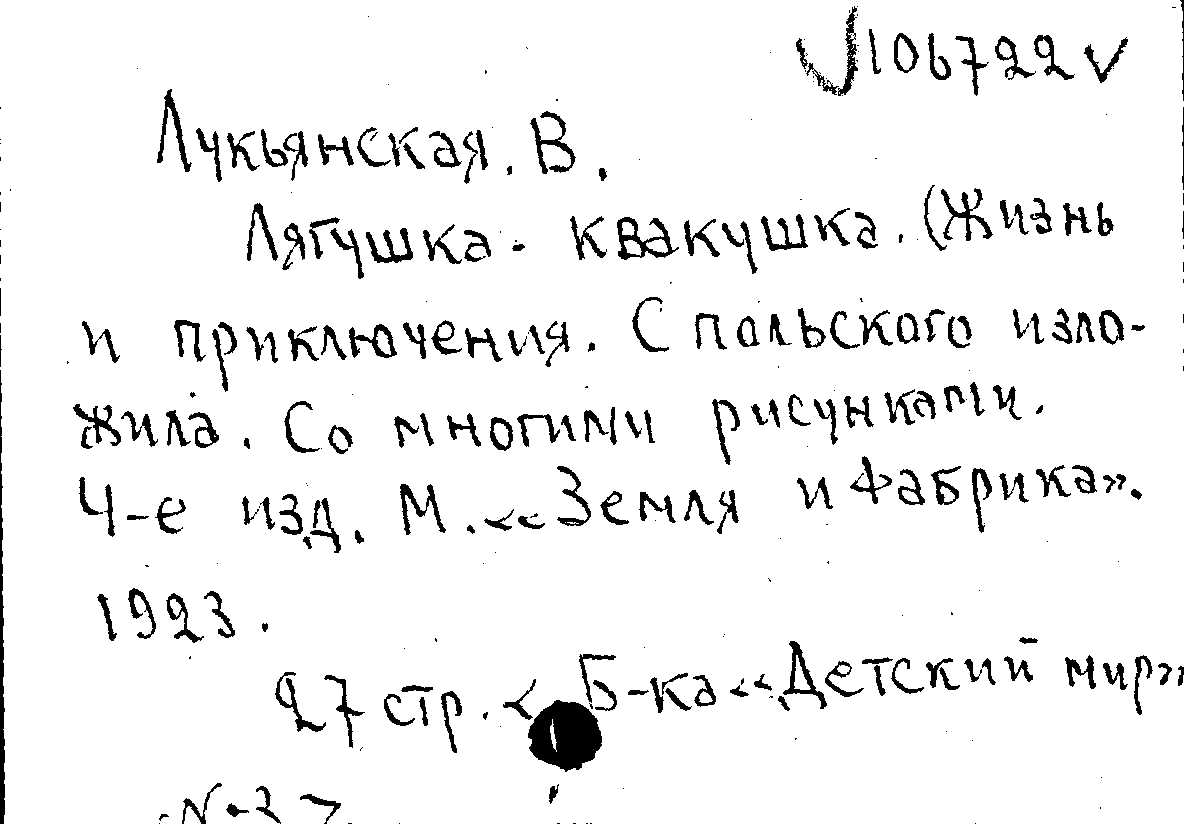 √106722 v
Лукьянская. В.
Лягушка - квакушка. (Жизнь
и приключения. С польского изло-
жила. Со многими рисунками.
4-е изд. М. «Земля и Фабрика».
1923.
27 стр. < Б-ка «Детский мир»
№ 3 >